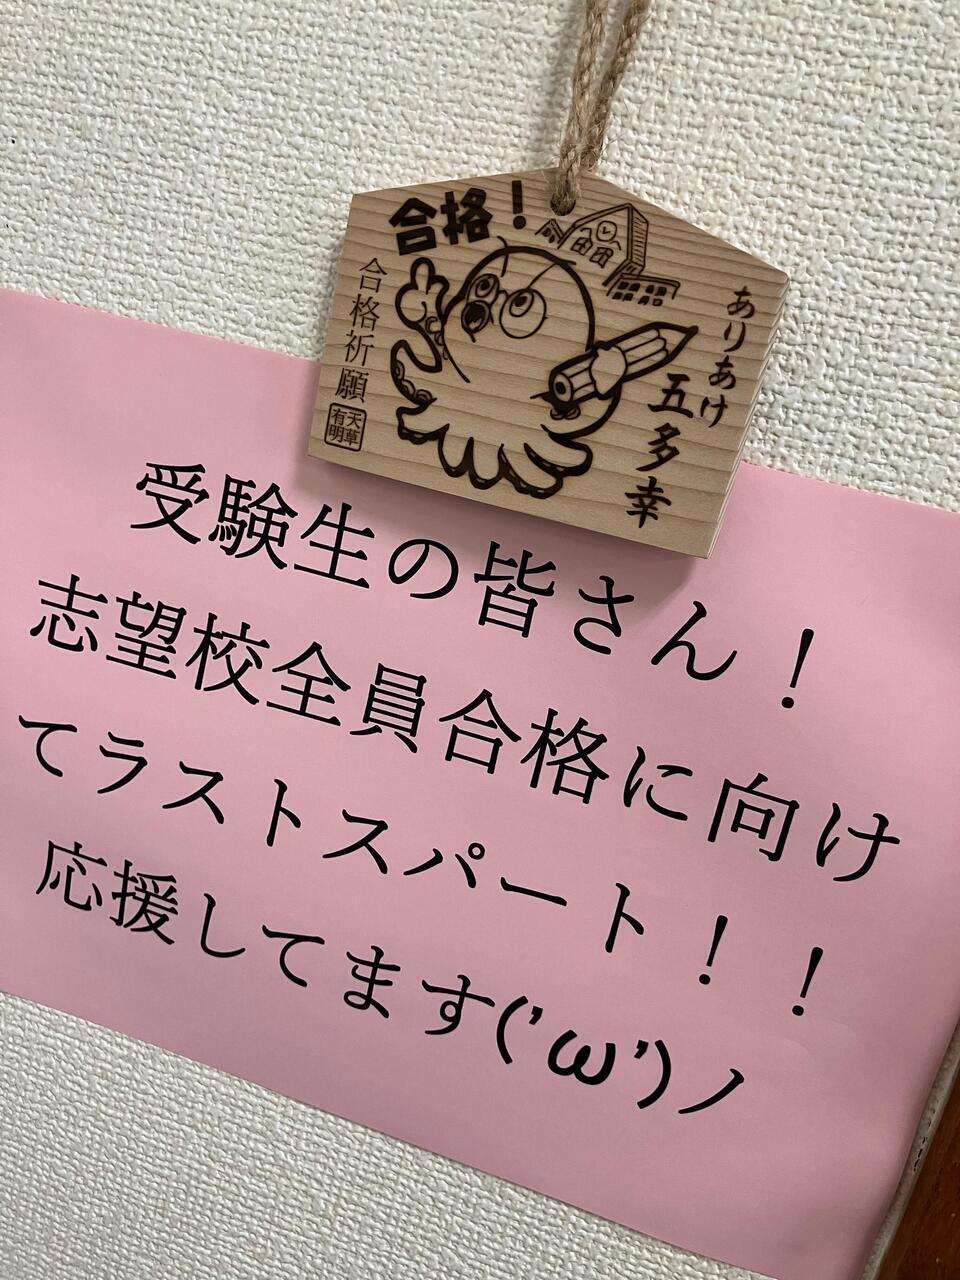 合格！
合格祈願
天草
有明
ありあけ
五多幸
受験生の皆さん！
志望校全員合格に向け
てラストスパート！！
応援してます('ω')ノ